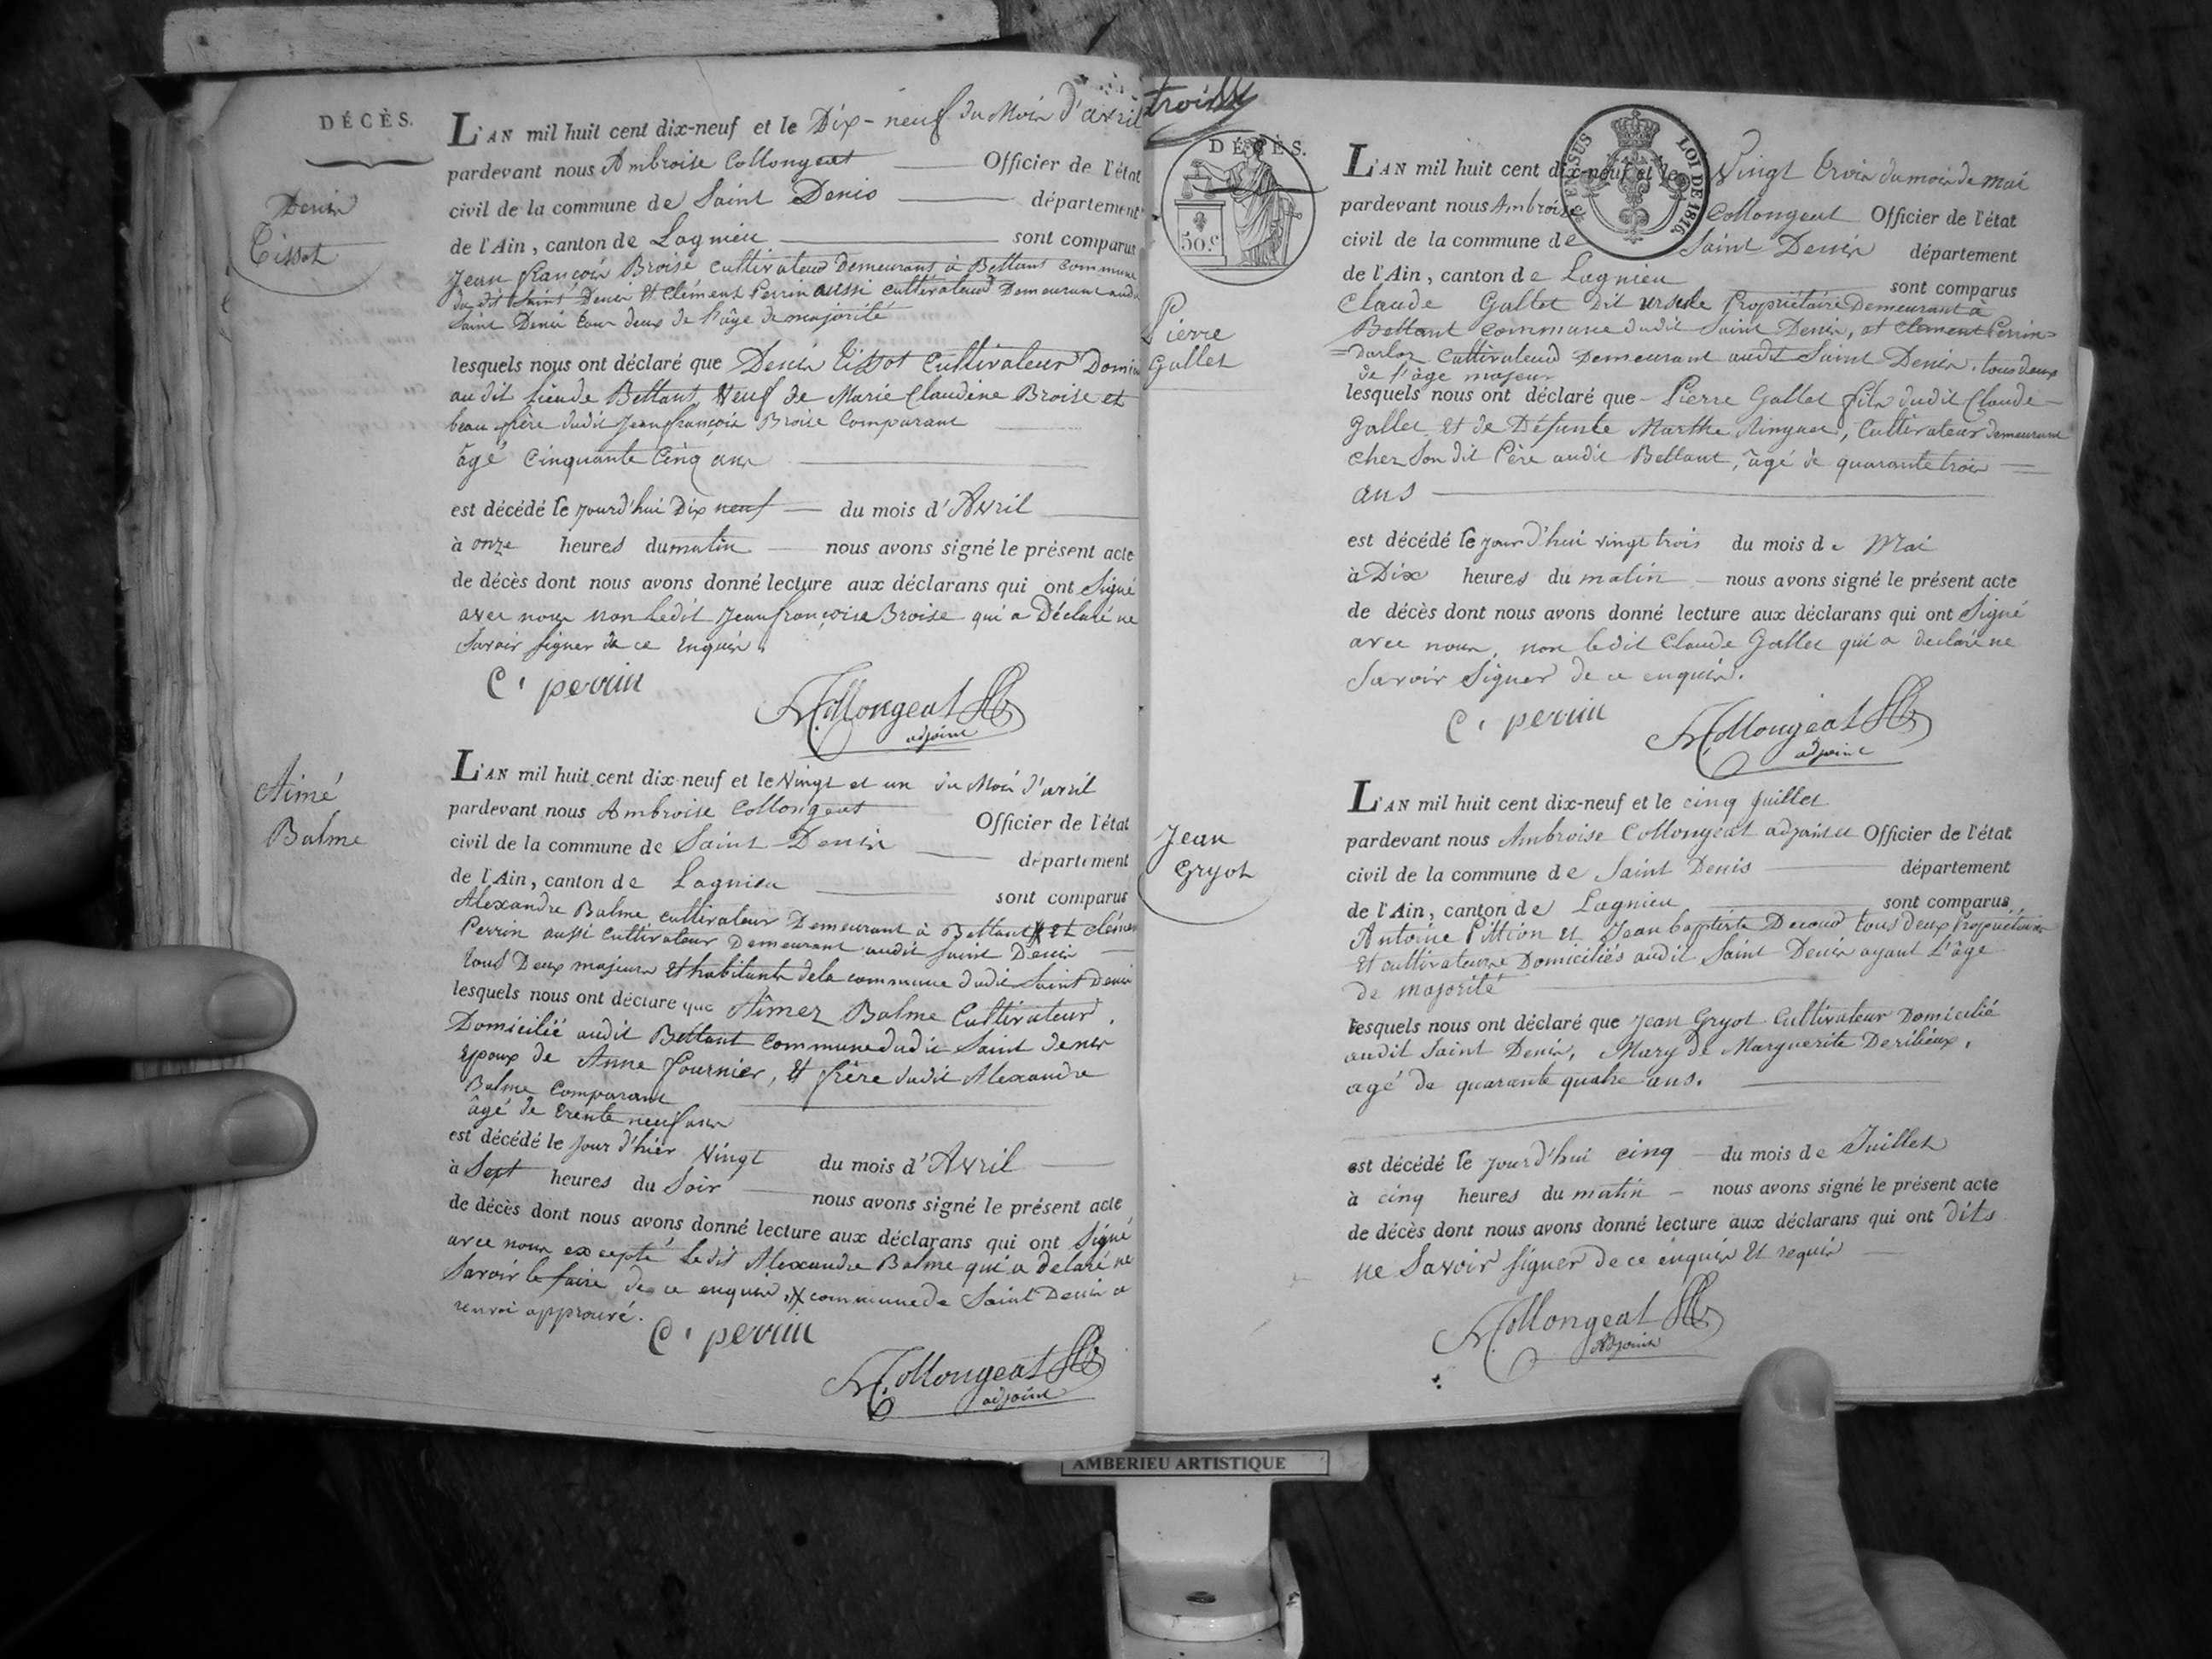 DÉCÈS.
Denis
Tissot
L'AN mil huit cent dix-neuf et le Dix-neuf du Mois d'avril
pardevant nous Ambroise Collongeat Officier de l'état
civil de la commune de Saint Denis département
de l'Ain, canton de Lagnieu sont comparus
Jean françois Broise cultivateur demeurant à Bettant Commune
du dit Saint Denis Et Clément Perrin aussi cultivateur Demeurant audit
Saint Denis tous deux de l'âge de majorité
lesquels nous ont déclaré que Denis Tissot Cultivateur Domici
au dit lieu de Bettant, Veuf de Marie Claudine Broise et
beau frère dudit Jean françois Broise Comparant
âgé Cinquante Cinq ans
est décédé le jourd'hui Dix neuf du mois d'Avril
à onze heures du matin nous avons signé le présent acte
de décès dont nous avons donné lecture aux déclarans qui ont Signé
avec nous non Ledit Jean françois Broise qui a Déclaré ne
Savoir signer de ce Enquis.
C. perrin
A. Collongeat
adjoint
Aimé
Balme
L'AN mil huit cent dix-neuf et le Vingt et un du Mois d'avril
pardevant nous Ambroise Collongeat Officier de l'état
civil de la commune de Saint Denis département
de l'Ain, canton de Lagnieu sont comparus
Alexandre Balme cultivateur Demeurant à Bettant X Et Clément
Perrin aussi Cultivateur Demeurant audit Saint Denis
tous Deux majeurs Et habitants de la commune dudit Saint Denis
lesquels nous ont déclaré que Aimez Balme Cultivateur
Domicilié audit Bettant Commune dudit Saint Denis
Epoux de Anne Fournier, Et frère dudit Alexandre
Balme Comparant
âgé de trente neuf ans
est décédé le Jour d'hier Vingt du mois d'Avril
à Sept heures du Soir nous avons signé le présent acte
de décès dont nous avons donné lecture aux déclarans qui ont Signé
avec nous excepté Ledit Alexandre Balme qui a déclaré ne
Savoir le faire de ce enquis, X commune de Saint Denis
renvoi approuvé.
C. perrin
A. Collongeat
adjoint
trois
DÉCÈS.
50.c
CENSUS
LOI DE 1816
Pierre
Gallet
L'AN mil huit cent dix-neuf et le Vingt trois du mois de mai
pardevant nous Ambroise Collongeat Officier de l'état
civil de la commune de Saint Denis département
de l'Ain, canton de Lagnieu sont comparus
Claude Gallet Dit ursule Propriétaire Demeurant à
Bettant Commune dudit Saint Denis, et Clément Perrin=
=Darloz Cultivateur Demeurant audit Saint Denis, tous deux
de l'âge majeur
lesquels nous ont déclaré que Pierre Gallet fils dudit Claude
Gallet Et de Défunte Marthe, Cultivateur demeurant
chez Son dit Père audit Bettant, âgé de quarante trois
ans
est décédé le jour d'hui vingt trois du mois de Mai
à Dix heures du matin nous avons signé le présent acte
de décès dont nous avons donné lecture aux déclarans qui ont Signé
avec nous, non ledit Claude Gallet qui a declaré ne
Savoir Signer de ce enquis.
C. perrin
A. Collongeat
adjoint
Jean
Gryot
L'AN mil huit cent dix-neuf et le cinq Juillet
pardevant nous Ambroise Collongeat adjoint et Officier de l'état
civil de la commune de Saint Denis département
de l'Ain, canton de Lagnieu sont comparus
Antoine Pittion et Jean baptiste tous deux Propriétaires
Et cultivateurs Domiciliés audit Saint Denis ayant L'âge
de majorité
lesquels nous ont déclaré que Jean Gryot Cultivateur Domicilié
audit Saint Denis, Mary de Marguerite,
agé de quarante quatre ans.
est décédé le jourd'hui cinq du mois de Juillet
à cinq heures du matin nous avons signé le présent acte
de décès dont nous avons donné lecture aux déclarans qui ont dits
ne Savoir Signer de ce enquis Et requis
A. Collongeat
Adjoint
AMBERIEU ARTISTIQUE